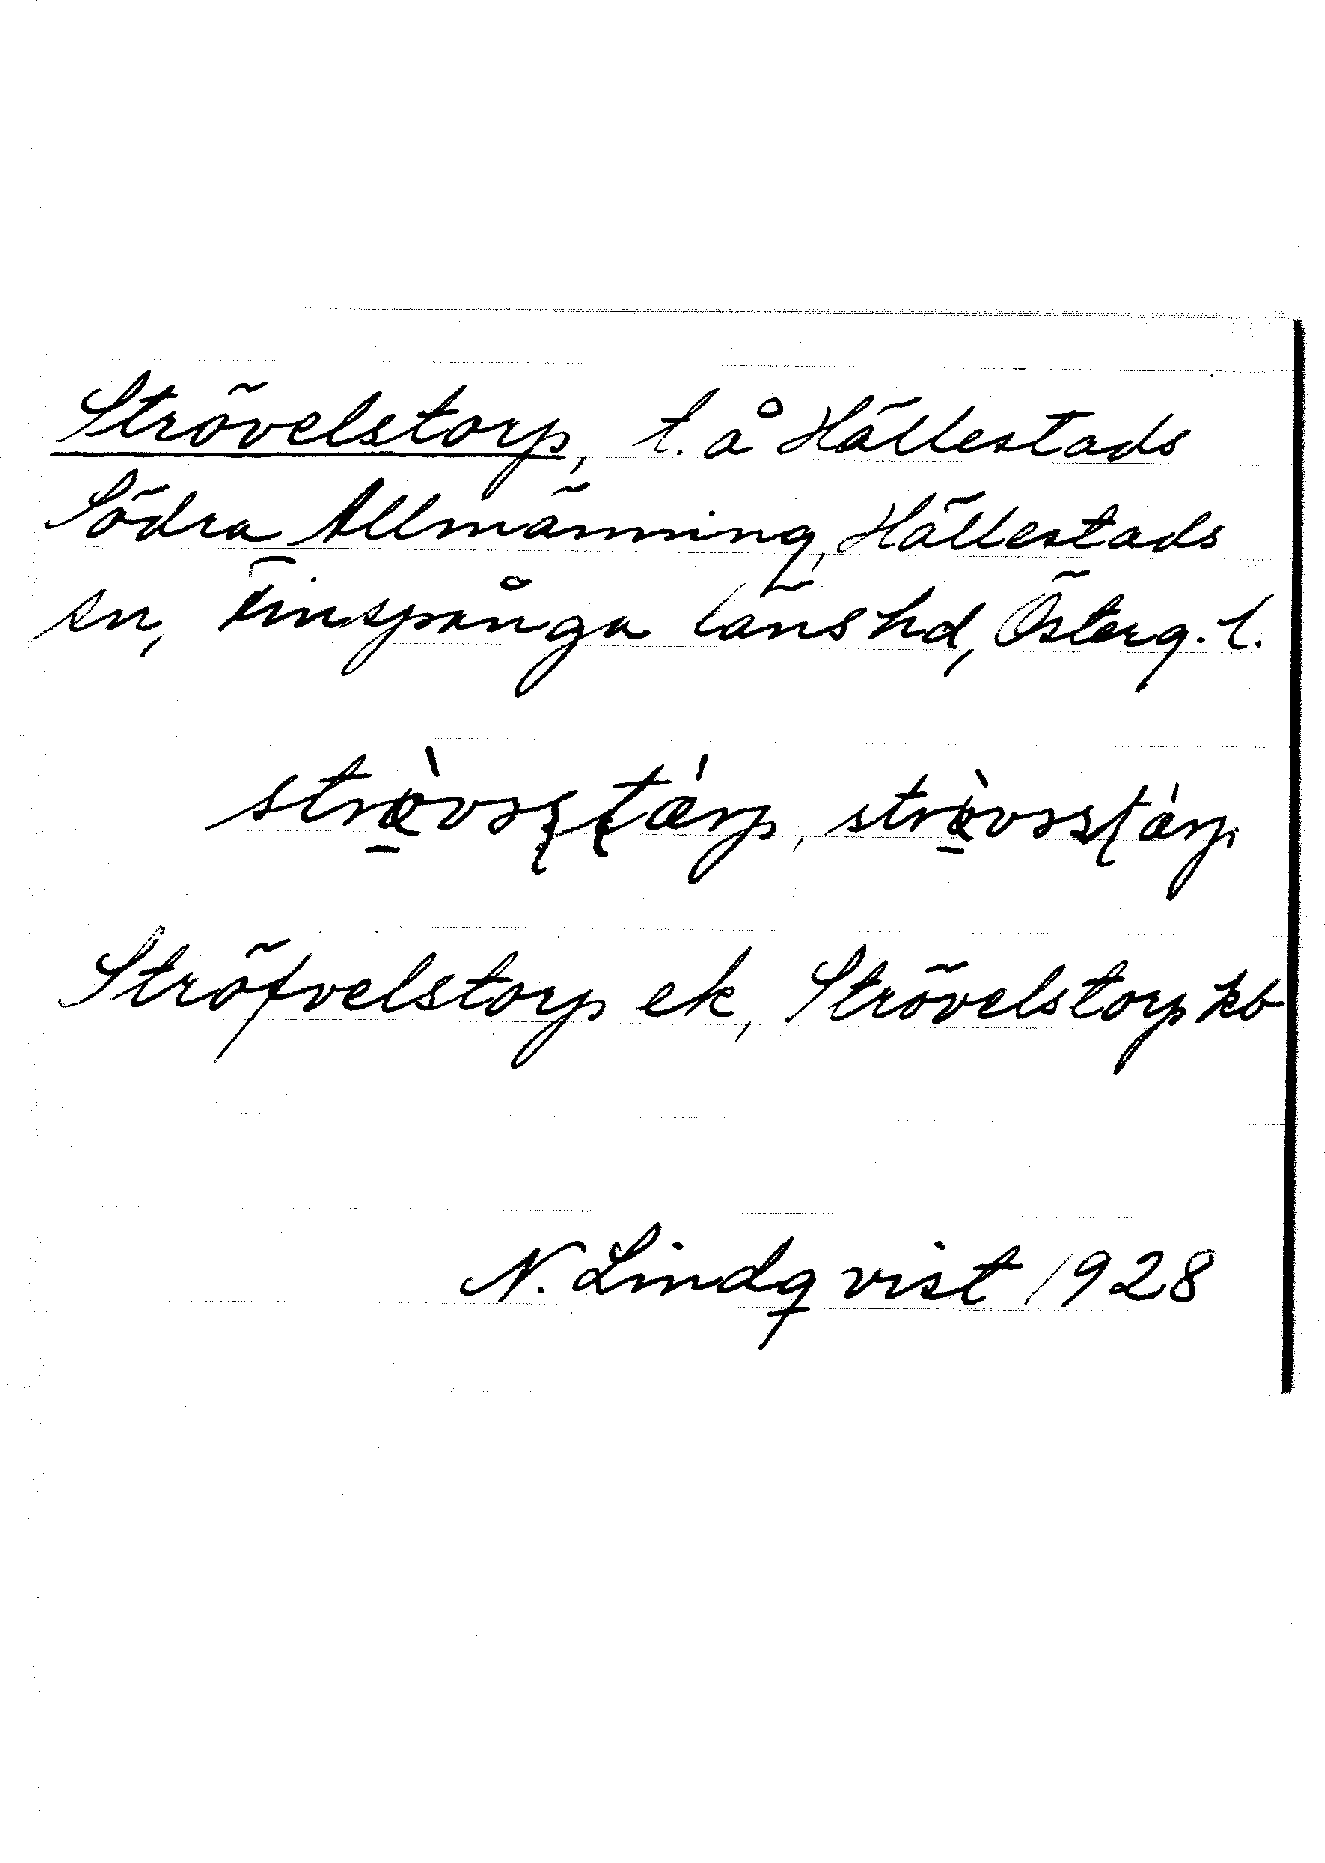 Strövelstorp, t. å Hällestads
Södra Allmänning, Hällestads
sn, Finspånga läns hd, Österg. l.
Ströfvelstorp ek, Strövelstorp kb
N. Lindqvist 1928